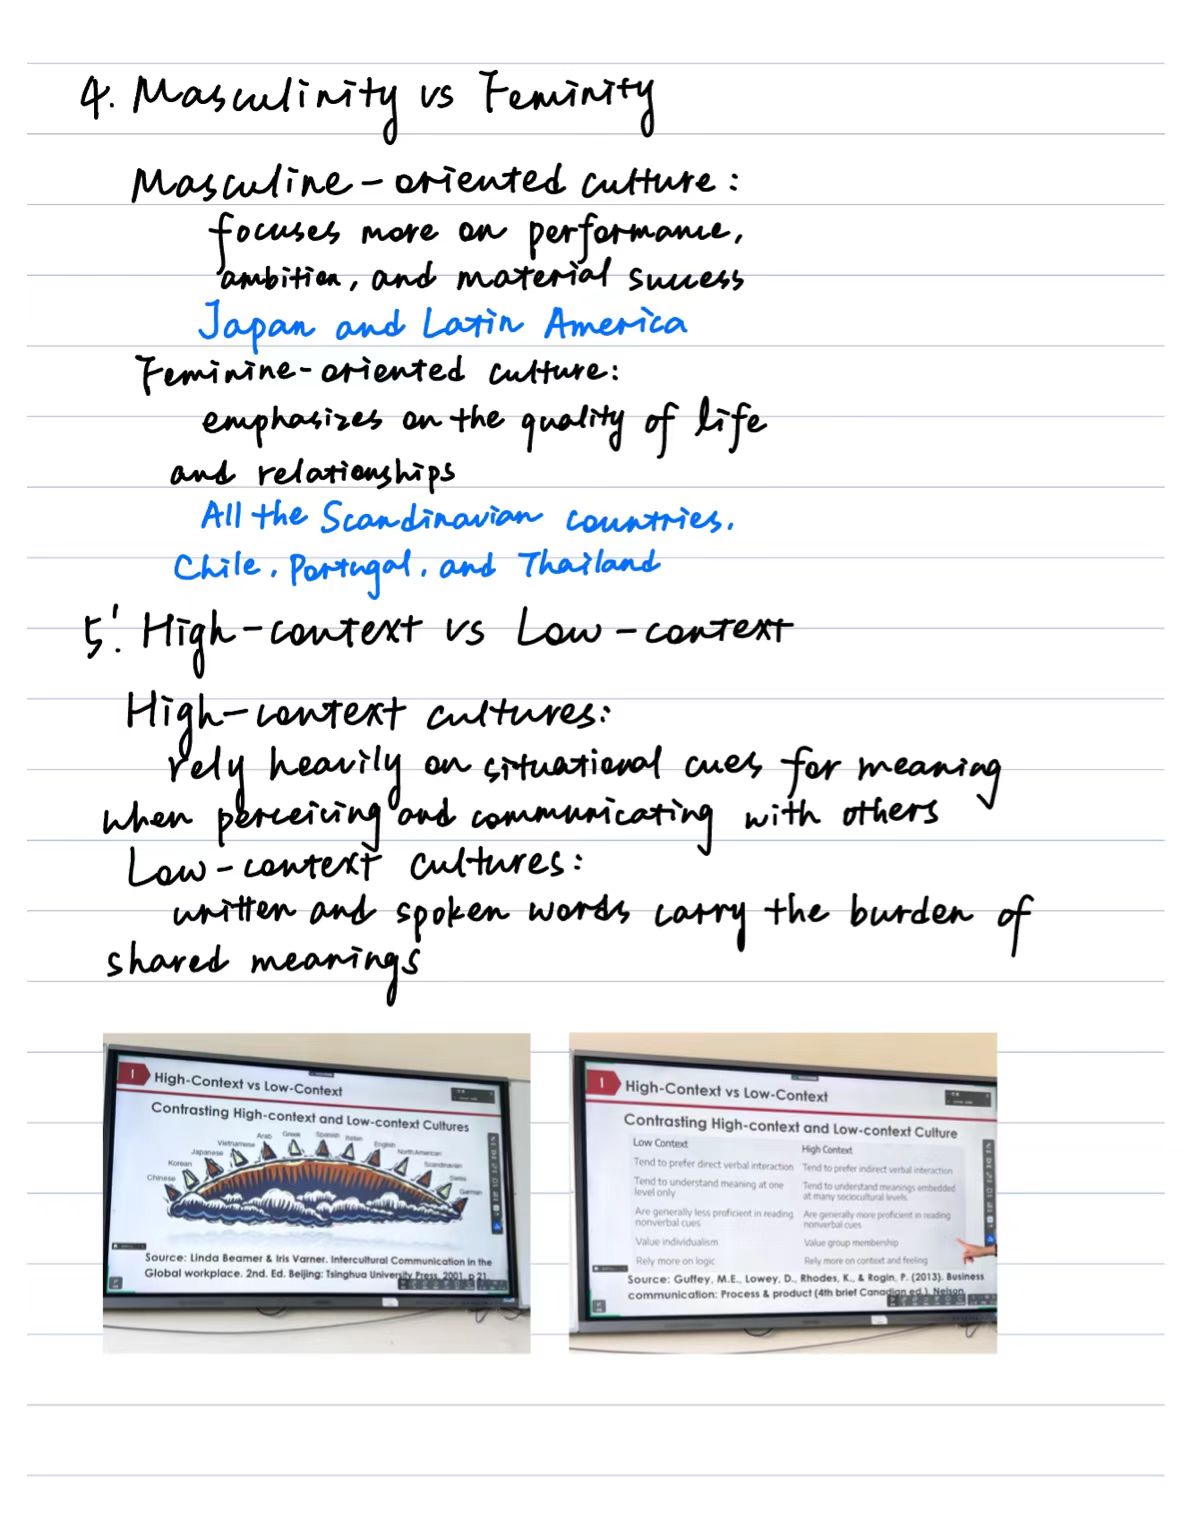 4. Masculinity vs Feminity
Masculine-oriented culture:
focuses more on performance,
ambition, and material success
Japan and Latin America
Feminine-oriented culture:
emphasizes on the quality of life
and relationships
All the Scandinavian countries.
Chile, Portugal, and Thailand
5. High-context vs Low-context
High-context cultures:
rely heavily on situational cues for meaning
when perceiving and communicating with others
Low-context cultures:
written and spoken words carry the burden of
shared meanings
1 High-Context vs Low-Context
Contrasting High-context and Low-context Cultures
Chinese
Korean
Japanese
Vietnamese
Arab
Greek
Spanish
Italian
English
North American
Scandinavian
Swiss
German
Source: Linda Beamer & Iris Varner. Intercultural Communication in the
Global workplace. 2nd. Ed. Beijing: Tsinghua University Press, 2001. p 21
1 High-Context vs Low-Context
Contrasting High-context and Low-context Culture
Low Context
High Context
Tend to prefer direct verbal interaction
Tend to prefer indirect verbal interaction
Tend to understand meaning at one
level only
Tend to understand meanings embedded
at many sociocultural levels
Are generally less proficient in reading
nonverbal cues
Are generally more proficient in reading
nonverbal cues
Value individualism
Value group membership
Rely more on logic
Rely more on context and feeling
Source: Guffey, M.E., Lowey, D., Rhodes, K., & Rogin, P. (2013). Business
communication: Process & product (4th brief Canadian ed.). Nelson